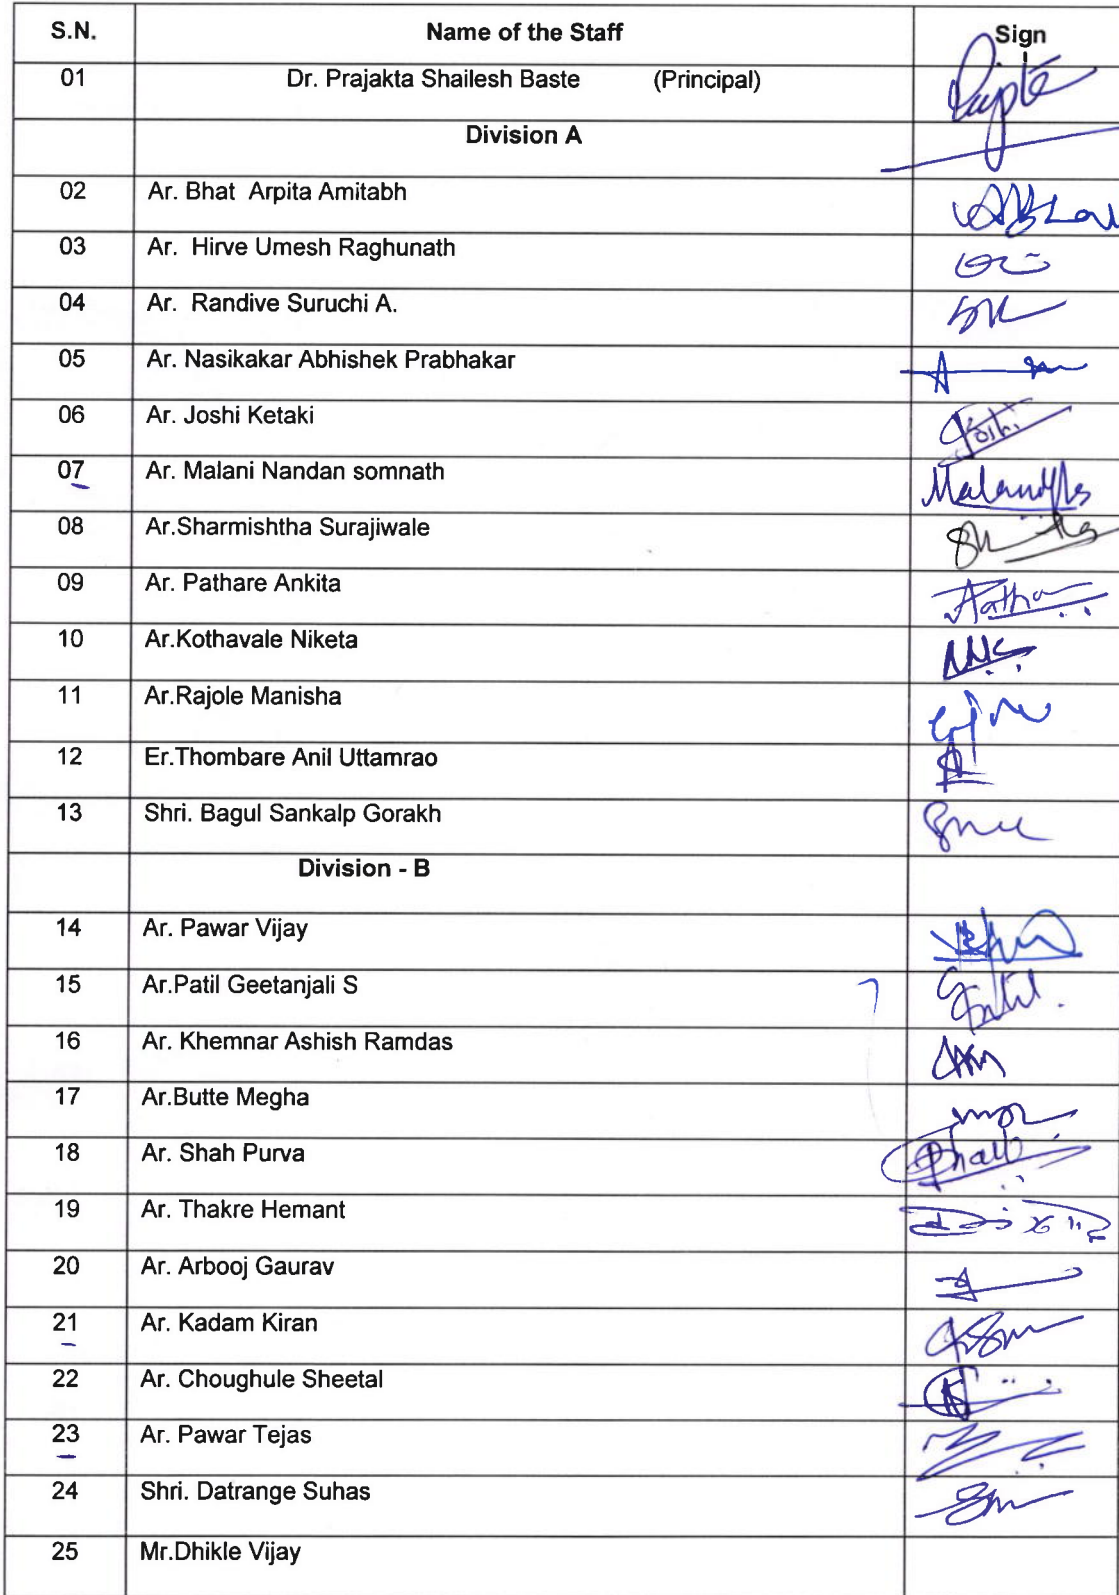 S.N. Name of the Staff Sign
01 Dr. Prajakta Shailesh Baste (Principal)
Division A
02 Ar. Bhat Arpita Amitabh
03 Ar. Hirve Umesh Raghunath
04 Ar. Randive Suruchi A.
05 Ar. Nasikakar Abhishek Prabhakar
06 Ar. Joshi Ketaki Joshi
07 Ar. Malani Nandan somnath
08 Ar.Sharmishtha Surajiwale
09 Ar. Pathare Ankita
10 Ar.Kothavale Niketa
11 Ar.Rajole Manisha
12 Er.Thombare Anil Uttamrao
13 Shri. Bagul Sankalp Gorakh
Division - B
14 Ar. Pawar Vijay
15 Ar.Patil Geetanjali S
16 Ar. Khemnar Ashish Ramdas
17 Ar.Butte Megha
18 Ar. Shah Purva
19 Ar. Thakre Hemant
20 Ar. Arbooj Gaurav
21 Ar. Kadam Kiran
22 Ar. Choughule Sheetal
23 Ar. Pawar Tejas
24 Shri. Datrange Suhas
25 Mr.Dhikle Vijay